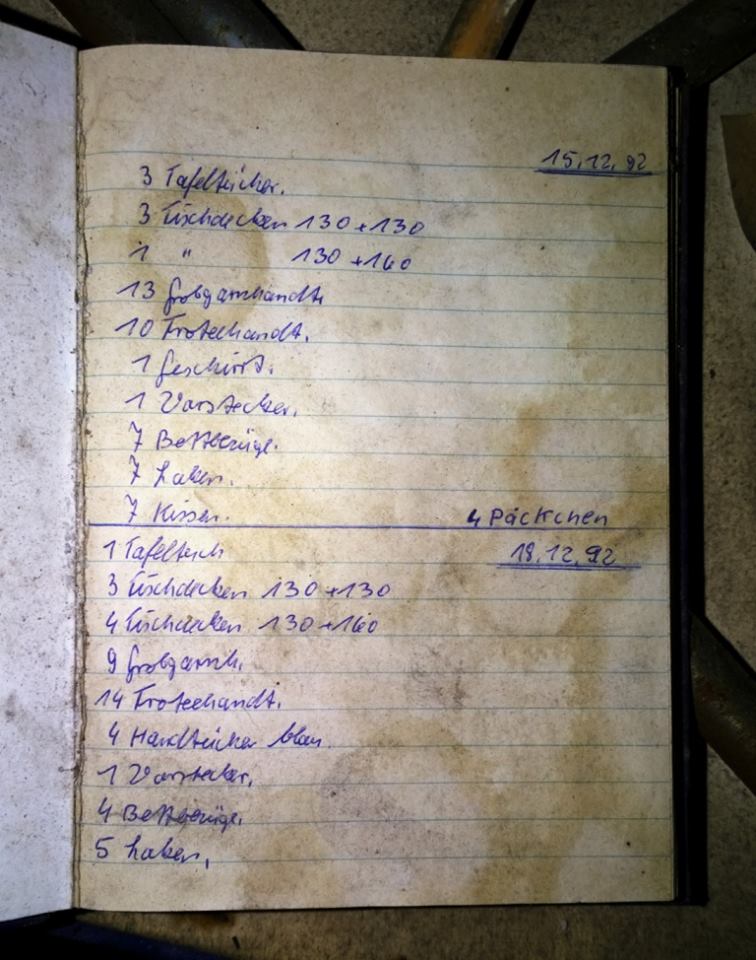 15.12.92
3 Tafeltücher.
3 Tischdecken 130+130
1 " 130+160
13 Grobgarnhandt.
10 Froteehandt.
1 Geschirrt.
1 Vorstecker.
7 Bettbezüge.
7 Laken.
7 Kissen.
4 Päckchen
18.12.92
1 Tafeltuch
3 Tischdecken 130+130
4 Tischdecken 130+160
9 Grobgarnh.
14 Froteehandt.
4 Handtücher blau.
1 Vorstecker.
4 Bettbezüge.
5 Laken.